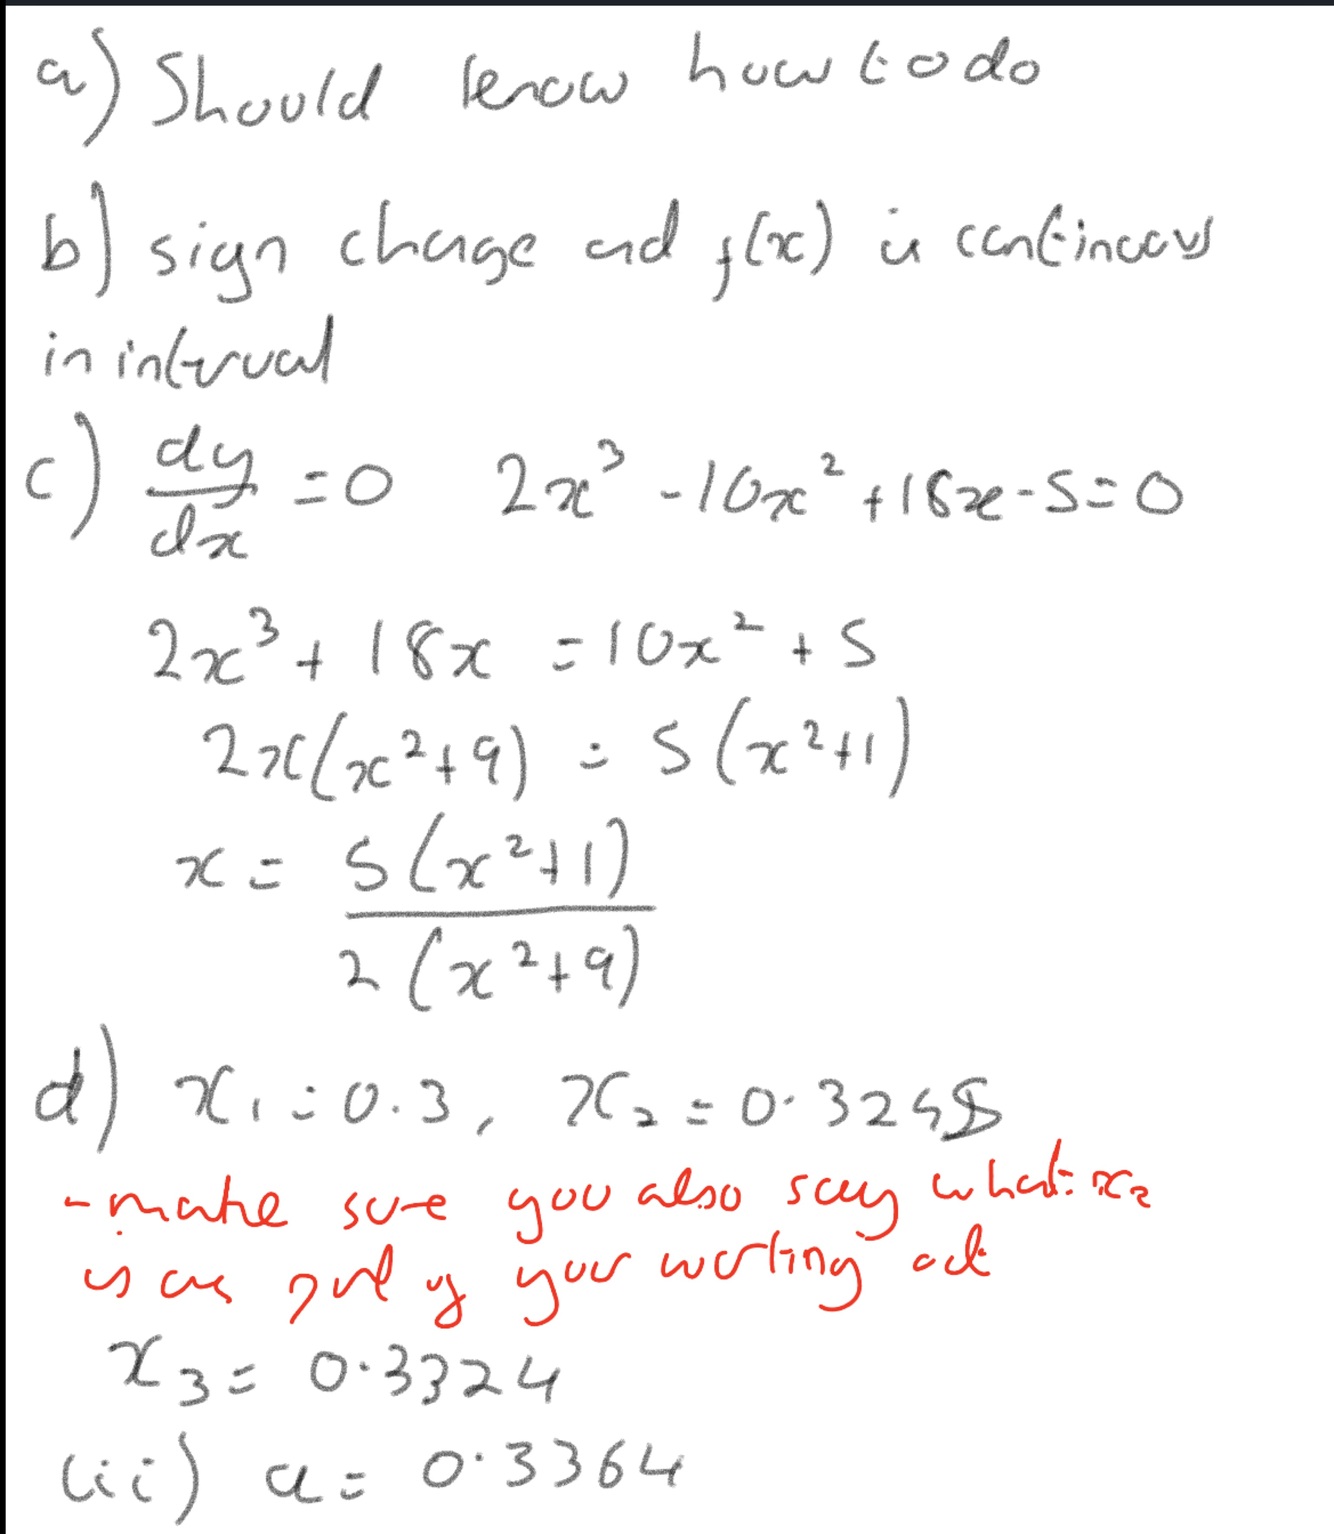 a) Should know how to do
b) sign change and f(x) is continuous
in interval
c) dy/dx = 0   2x³ - 10x² + 18x - 5 = 0
2x³ + 18x = 10x² + 5
2x(x² + 9) = 5(x² + 1)
x = 5(x² + 1)
2(x² + 9)
d) x₁ = 0.3, x₂ = 0.3245
- make sure you also say what x₂
is as part of your working out
x₃ = 0.3324
(ii) a = 0.3364